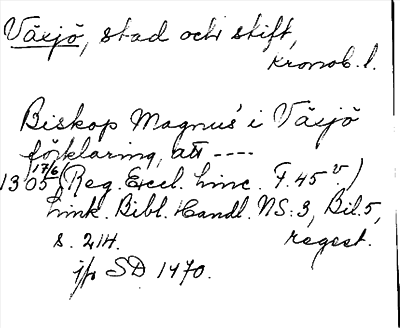 Växjö, stad och stift,
Kronob. l.
Biskop Magnus' i Växjö
förklaring, att ----
1305 17/6 (Reg. Eccl. Linc. F. 45 v)
Link. Bibl. Handl. NS: 3, Bil. 5,
s. 214. regest.
jfr SD 1470.